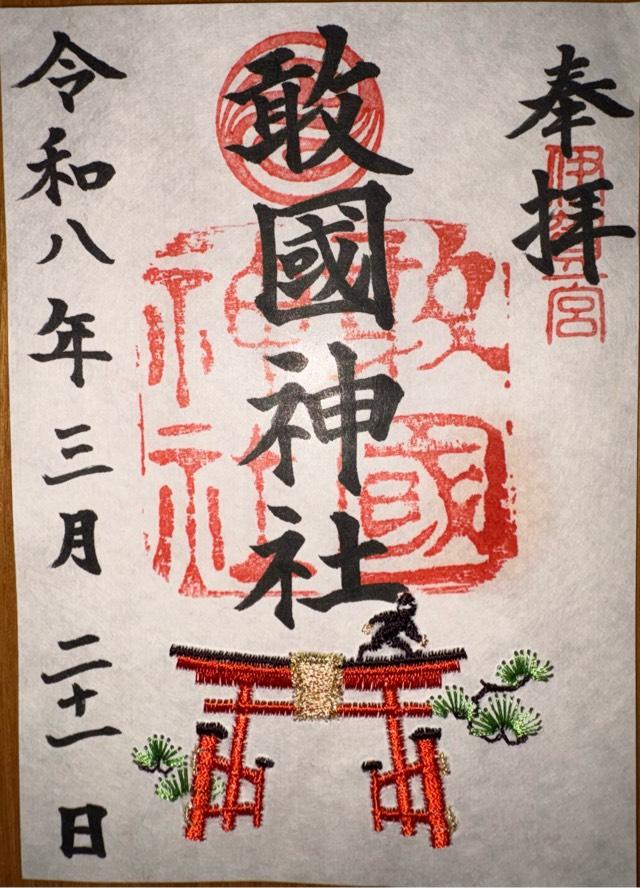 奉拝
伊賀一宮
敢國神社
敢國神社
令和八年三月二十一日